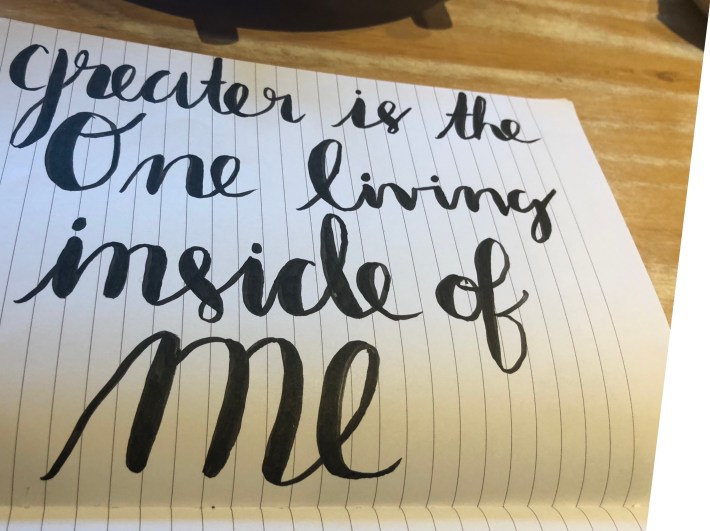 greater is the
One living
inside of
me